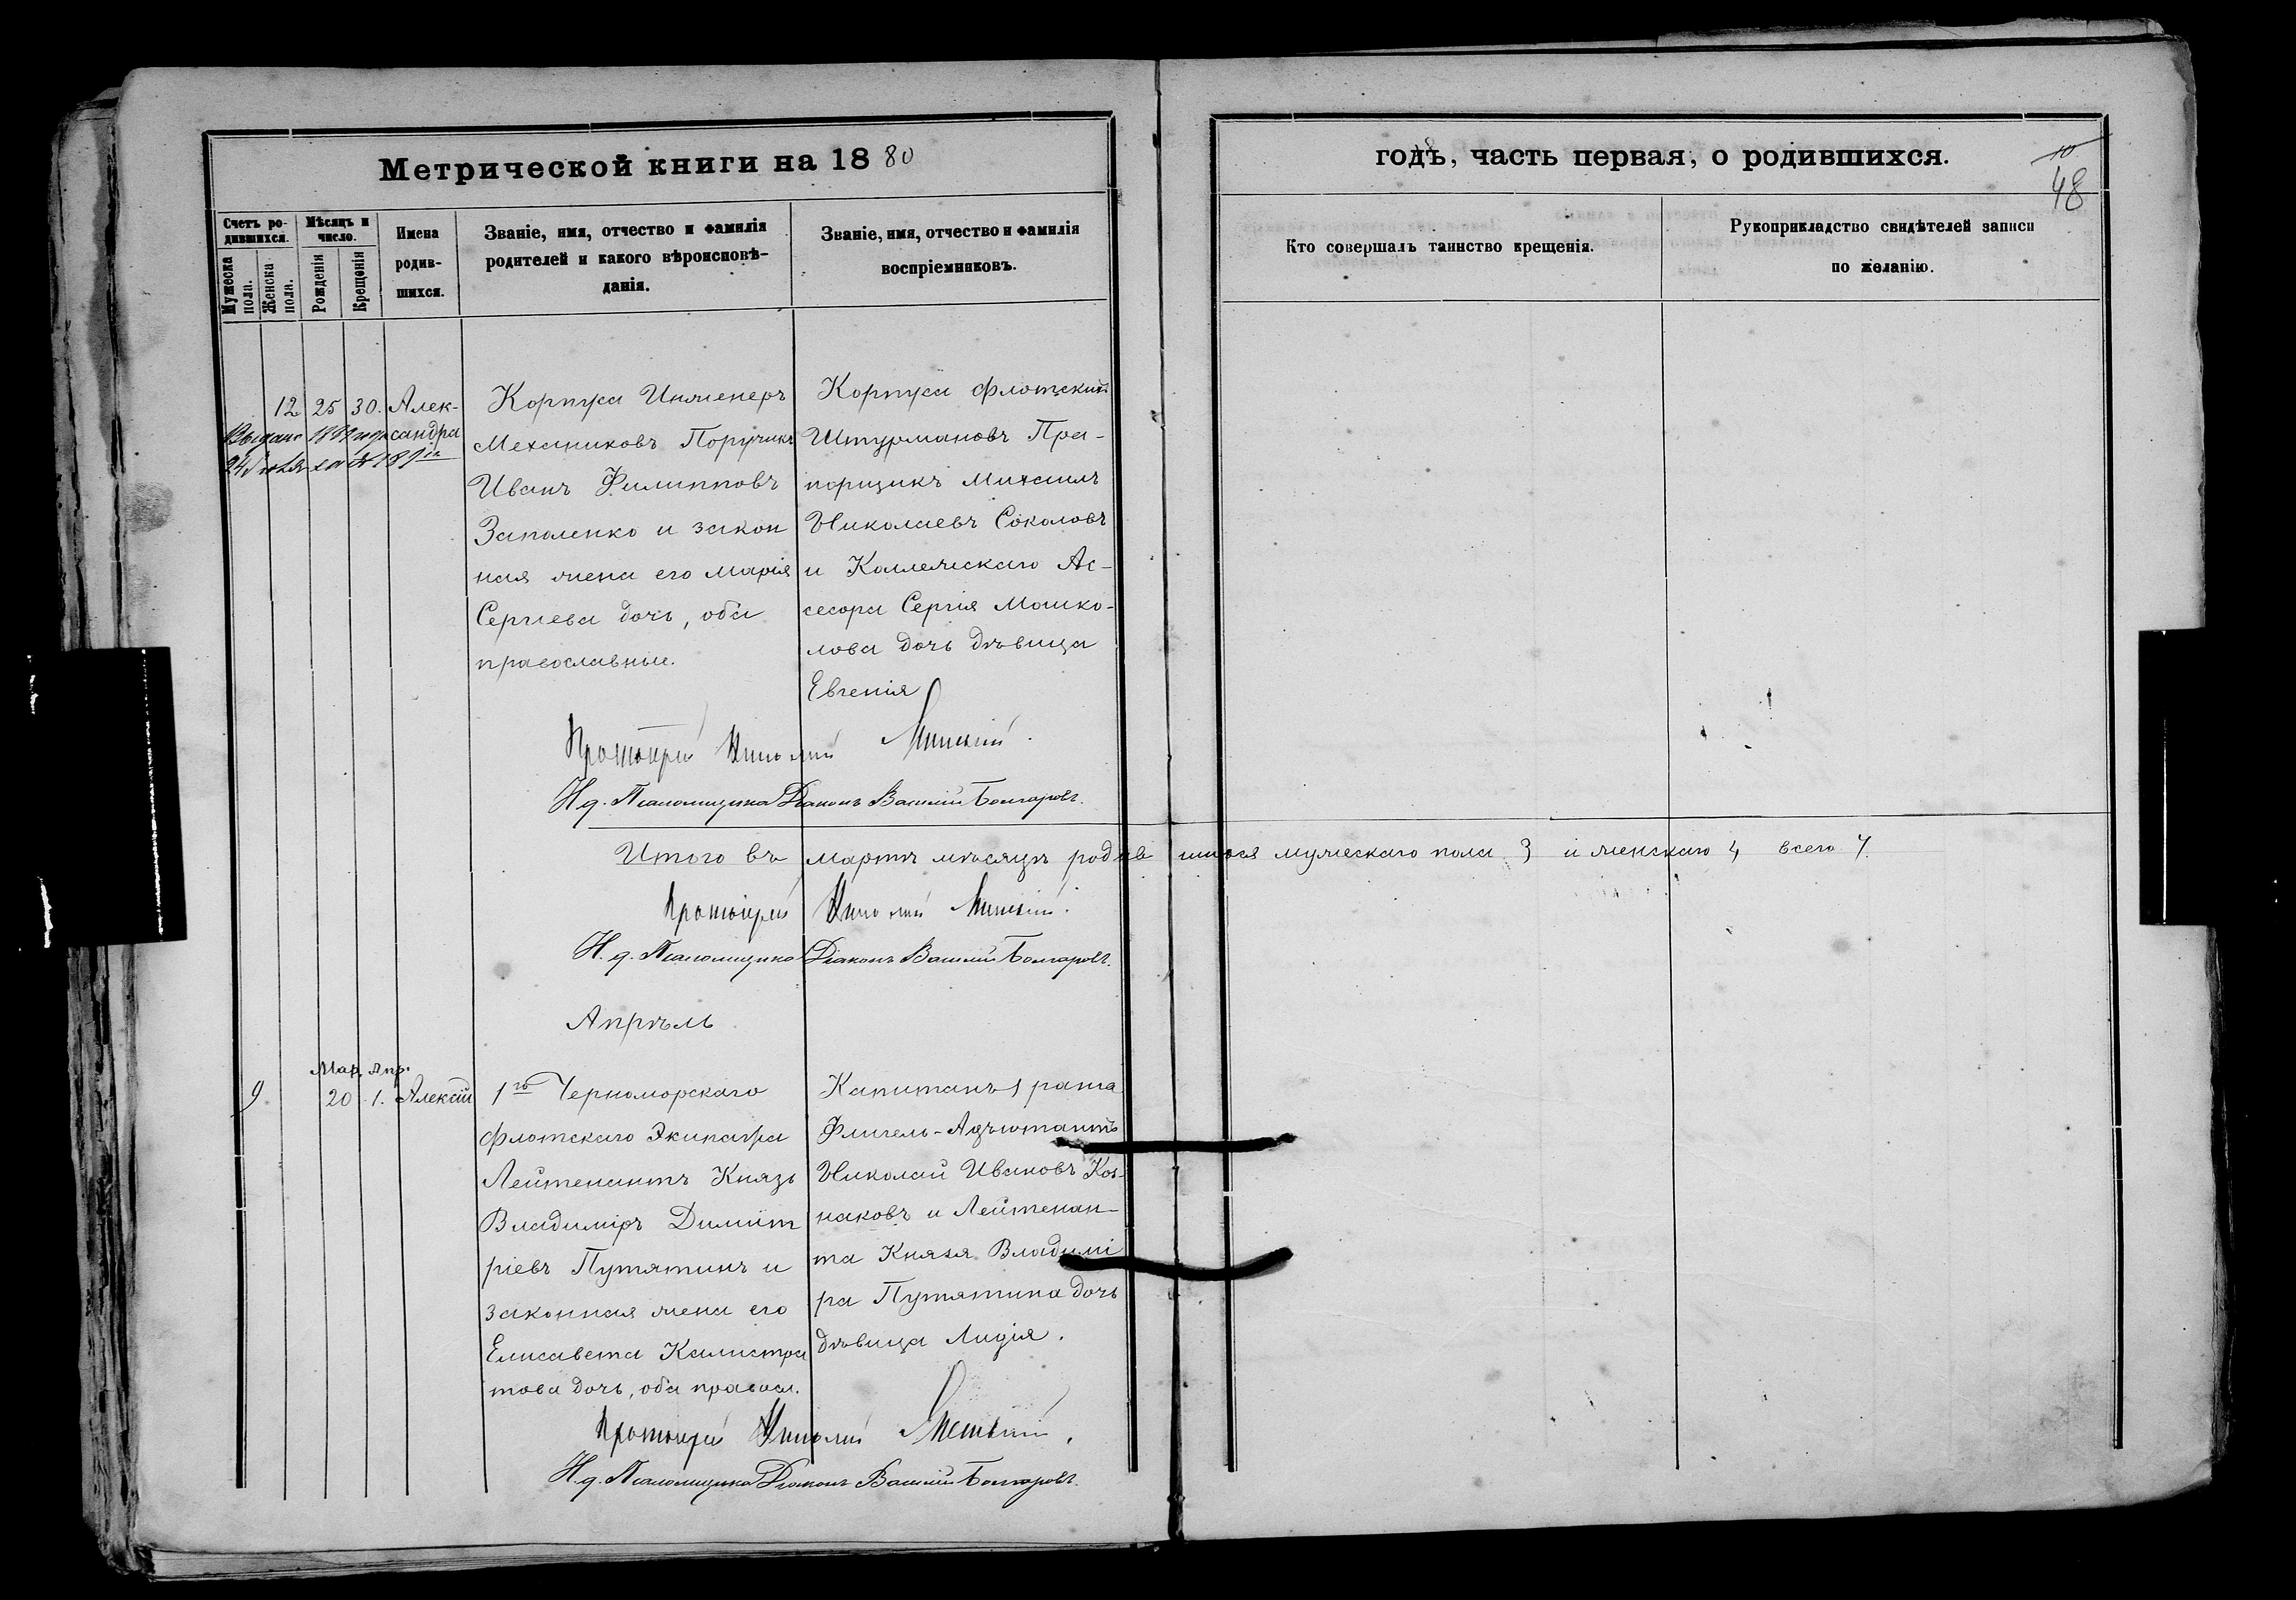 Метрической книги на 1880
годъ, часть первая, о родившихся.
10
48
Счетъ родившихся.
Мужеска пола.
Женска пола.
Мѣсяцъ и число.
Рожденія
Крещенія
Имена родившихся.
Званіе, имя, отчество и фамилія
родителей и какого вѣроисповѣ-
данія.
Званіе, имя, отчество и фамилія
воспріемниковъ.
Кто совершалъ таинство крещенія.
Рукоприкладство свидѣтелей записи
по желанію.
12 25 30. Алек-
сандра
Корпуса Инженеръ
Механиковъ Поручикъ
Иванъ Филипповъ
Запаленко и закон
ная жена его Марія
Сергіева дочь, оба
православные.
Корпуса флотскихъ
Штурмановъ Пра-
порщикъ Михаилъ
Николаевъ Соколовъ
и Коллежскаго Ас-
сесора Сергія Мошко-
лова дочь дѣвица
Евгенія
Протоіерей Николай
И. д. Псаломщика Діаконъ Василій Болгаровъ.
Итого въ мартѣ мѣсяцѣ родившихся мужескаго пола 3 и женскаго 4 всего 7.
Протоіерей Николай
И. д. Псаломщика Діаконъ Василій Болгаровъ.
Апрѣль
Мар. Апр.
9 20 1. Алексій
1го Черноморскаго
флотскаго Экипажа
Лейтенантъ Князь
Владиміръ Димит
ріевъ Путятинъ и
законная жена его
Елисавета Калистра
това дочь, оба правосл.
Капитанъ 1 ранга
Флигель-Адъютантъ
Николай Ивановъ Каз-
наковъ и Лейтенан-
та Князя Владимі
ра Путятина дочь
дѣвица Лидія.
Протоіерей Николай
И. д. Псаломщика Діаконъ Василій Болгаровъ.